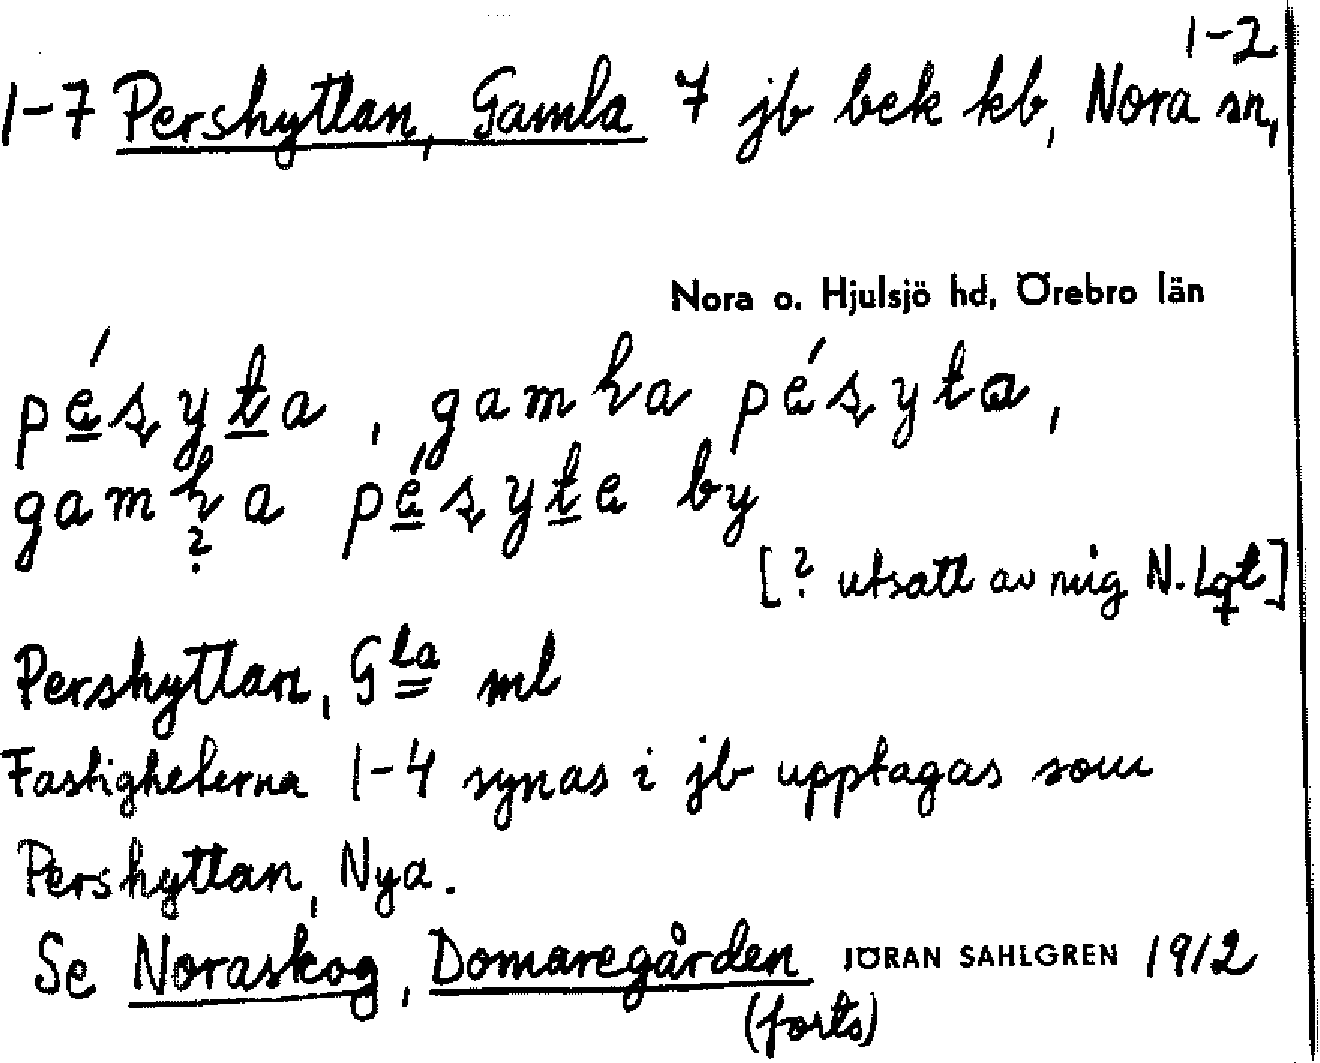 1-2
1-7 Pershyttan, Gamla 7 jb bek kb, Nora sn,
Nora o. Hjulsjö hd, Örebro län
[? utsatt av mig N. Lqt]
Pershyttan, Gla ml
Fastigheterna 1-4 synas i jb upptagas som
Pershyttan, Nya.
Se Noraskog, Domaregården JÖRAN SAHLGREN 1912
(forts)